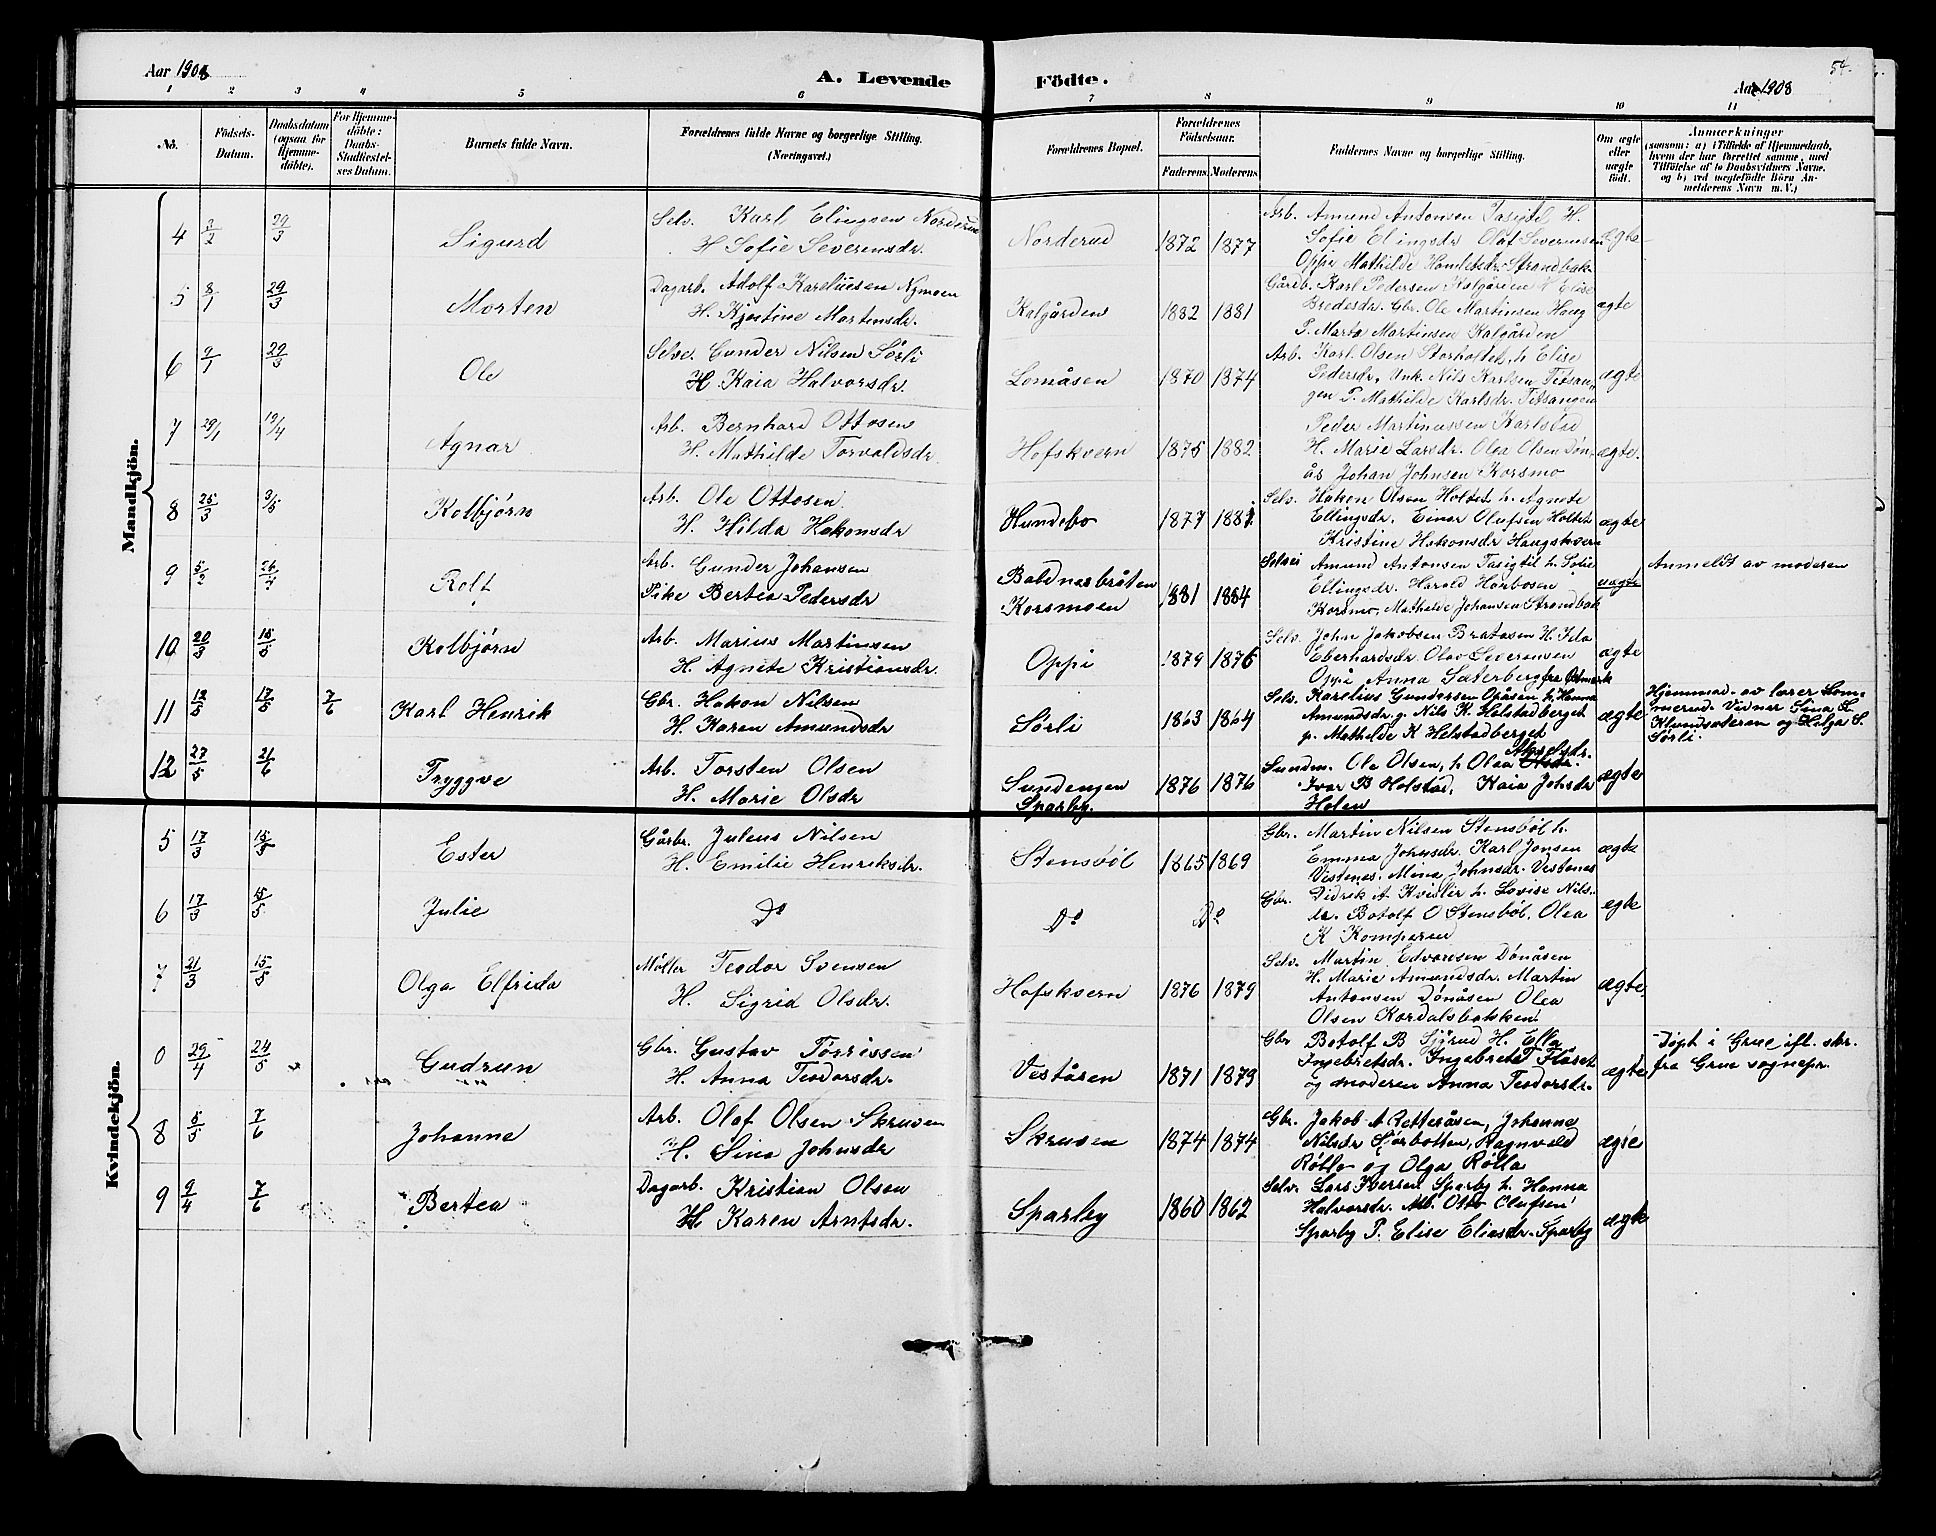 Aar 1908
A. Levende
Födte.
Aar 1908
54.
1 2 3 4 5 6 7 8 9 10 11
No.
Födsels-
Datum.
Daabsdatum
(ogsaa for
Hjemme-
döbte).
For Hjemme-
döbte:
Daabs-
Stadfæstel-
ses Datum.
Barnets fulde Navn.
Forældrenes fulde Navne og borgerlige Stilling.
(Næringsvei.)
Forældrenes Bopæl.
Forældrenes
Födselsaar.
Faderens. Moderens.
Faddernes Navne og borgerlige Stilling.
Om ægte
eller
uægte
födt.
Anmærkninger
(saasom: a) i Tilfælde af Hjemmedaab,
hvem der har forrettet samme, med
Tilföielse af to Daabsvidners Navne,
og b) ved uægtefödte Börn An-
melderens Navn m. V.)
Mandkjön.
4 2/2 29/3 Sigurd
Selv. Karl Elingsen Norderud
H Sofie Severensdr.
Norderud 1872 1877
Arb. Amund Antonsen Tasigtil H.
Sofie Elingsdr Olaf Severinsen
Oppi Mathilde Hanletsdr. Strandbak.
ægte
5 8/1 29/3 Morten
Dagarb. Adolf Kareliusen Nymoen
H. Kjerstine Martinsdr.
Kalgården 1882 1881
Gårdb. Karl Pedersen Kalgården H Elise
Bredesdr. Gbr. Ole Martinsen Haug
P. Marta Martinsen Kalgården
ægte
6 9/1 29/3 Ole
Selve. Gunder Nilsen Sörli
H. Kaia Halvorsdr.
Lomåsen 1870 1874
Arb. Karl Olsen Storholtet, h. Elise
Pedersdr, Unk. Nils Karlsen Titsan-
gen P. Mathilde Karlsdr. Titsangen
ægte
7 29/1 19/4 Agnar
Arb. Bernhard Ottosen
H. Mathilde Torvaldsdr.
Hofskvern 1875 1882
Peder Martinussen Karlstad
H. Marie Larsdr. Olea Olsen Dön-
ås Johan Johnsen Korsmo
ægte.
8 25/3 3/5 Kolbjørn
Arb. Ole Ottosen
H. Hilda Hakonsdr
Hundebo 1877 1881
Selv. Hakon Olsen Holtet h. Agnete
Ellingsdr. Einar Olufsen Holtet
Kristine Hakonsdr Haugskvern
ægte
9 5/2 26/4 Rolf
Arb. Gunder Johansen
Pike Bertea Pedersdr
Baldnesbråten
Korsmoen
1881 1884
Selvei Amund Antonsen Tasigtil h. Sofie
Ellingsdr. Harald Harbosen
Korsmo, Mathilde Johansen Strandbak
uægte
Anmeldt av moderen
10 20/3 15/5 Kolbjørn
Arb. Marius Martinsen
H. Agnete Kristiansdr.
Oppi 1879 1876
Selv. John Jakobsen Bratåsen H. Ida
Eberhardsdr. Olav Severensen
Oppi Anna Sæterberg
ægte
11 12/5 17/5 7/6 Karl Henrik
Gbr. Hakon Nilsen
H. Karen Amundsdr
Sörli 1863 1864
Selv. Karelius Gundersen Opåsen h. Hanna
Amundsdr p. Nils K. Helstadberget
p. Mathilde K Helstadberget
ægte
Hjemmed. av lærer Lom-
merud. Vidner Sina S.
Klundsæteren og Helga S.
Sörli.
12 27/5 21/6 Tryggve
Arb. Torsten Olsen
H. Marie Olsdr
Sundengen
Sparby. 1876 1876
Sunden. Ole Olsen, h. Olea Akselsdr.
Ivar B Holstad, Kaia Johsdr
Holen
ægte
Kvindekjön.
5 17/3 15/5 Ester
Gårbr. Juleus Nilsen
H. Emilie Henriksdr.
Stensböl 1865 1869
Gbr. Martin Nilsen Stensböl h.
Emma Johnsdr. Karl Jonsen
Vestenes. Mina Johnsdr. Vestenes
ægte
6 17/3 15/5 Julie
Do
Do Do
Gbr. Didrik A. Kvisler h. Lovise Nils-
dr. Botolf O Stensböl, Olea
K Komperud
ægte
7 21/3 15/5 Olga Elfrida
Møller Teodor Svensen
H. Sigrid Olsdr.
Hofskvern 1876 1879
Selv. Martin Edvardsen Dönåsen
H. Marie Amundsdr. Martin
Antonsen Dönåsen Olea
Olsen Kordalsbakken
ægte.
0 29/4 24/5 Gudrun
Gbr. Gustav Torrissen
H. Anna Teodorsdr.
Veståsen 1871 1879
Gbr Botolf B Sjörud H. Ella
Ingebretsdr. Ingebret T Flåset
og moderen Anna Teodorsdr.
ægte
Døpt i Grue ifl. skr.
fra Grue sognepr.
8 5/5 7/6 Johanne
Arb. Olaf Olsen Skruven
H. Sina Johnsdr
Skrusen 1874 1874
Gbr. Jakob A Rotteråsen, Johanne
Nilsdr Sjørbotten, Ragnvald
Røtta og Olga Røtta
ægte
9 9/4 7/6 Bertea
Dagarb. Kristian Olsen
H Karen Arntsdr.
Sparby 1860 1862
Selv. Lars Iversen Sparby h. Hanna
Halvorsdr. Arb. Otto Olufsen
Sparby P. Elise Eliasdr. Sparby
ægte